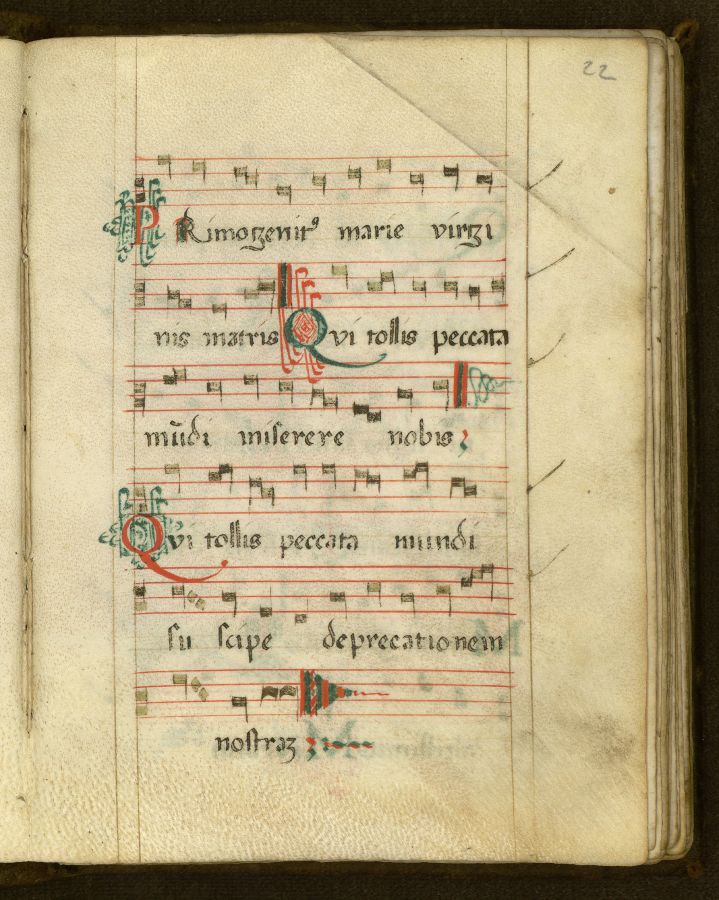 22
PRimogenitꝰ marie virgi
nis matris Qvi tollis peccata
mūdi miserere nobis;
Qvi tollis peccata mundi
su scipe deprecationem
nostraʒ ;